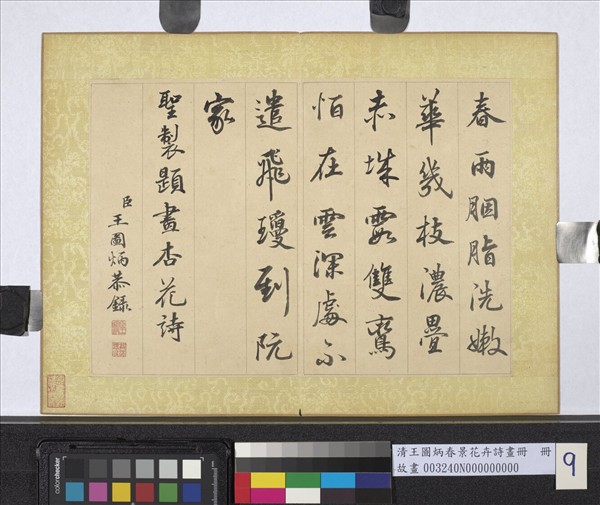 春雨胭脂洗嫩
華幾枝濃疊
赤城霞雙鸞
怕在雲深處不
遣飛瓊到阮
家
聖製題畫杏花詩
臣王圖炳恭錄
清王圖炳春景花卉詩畫冊 冊
故畫 003240N000000000
9
colorchecker